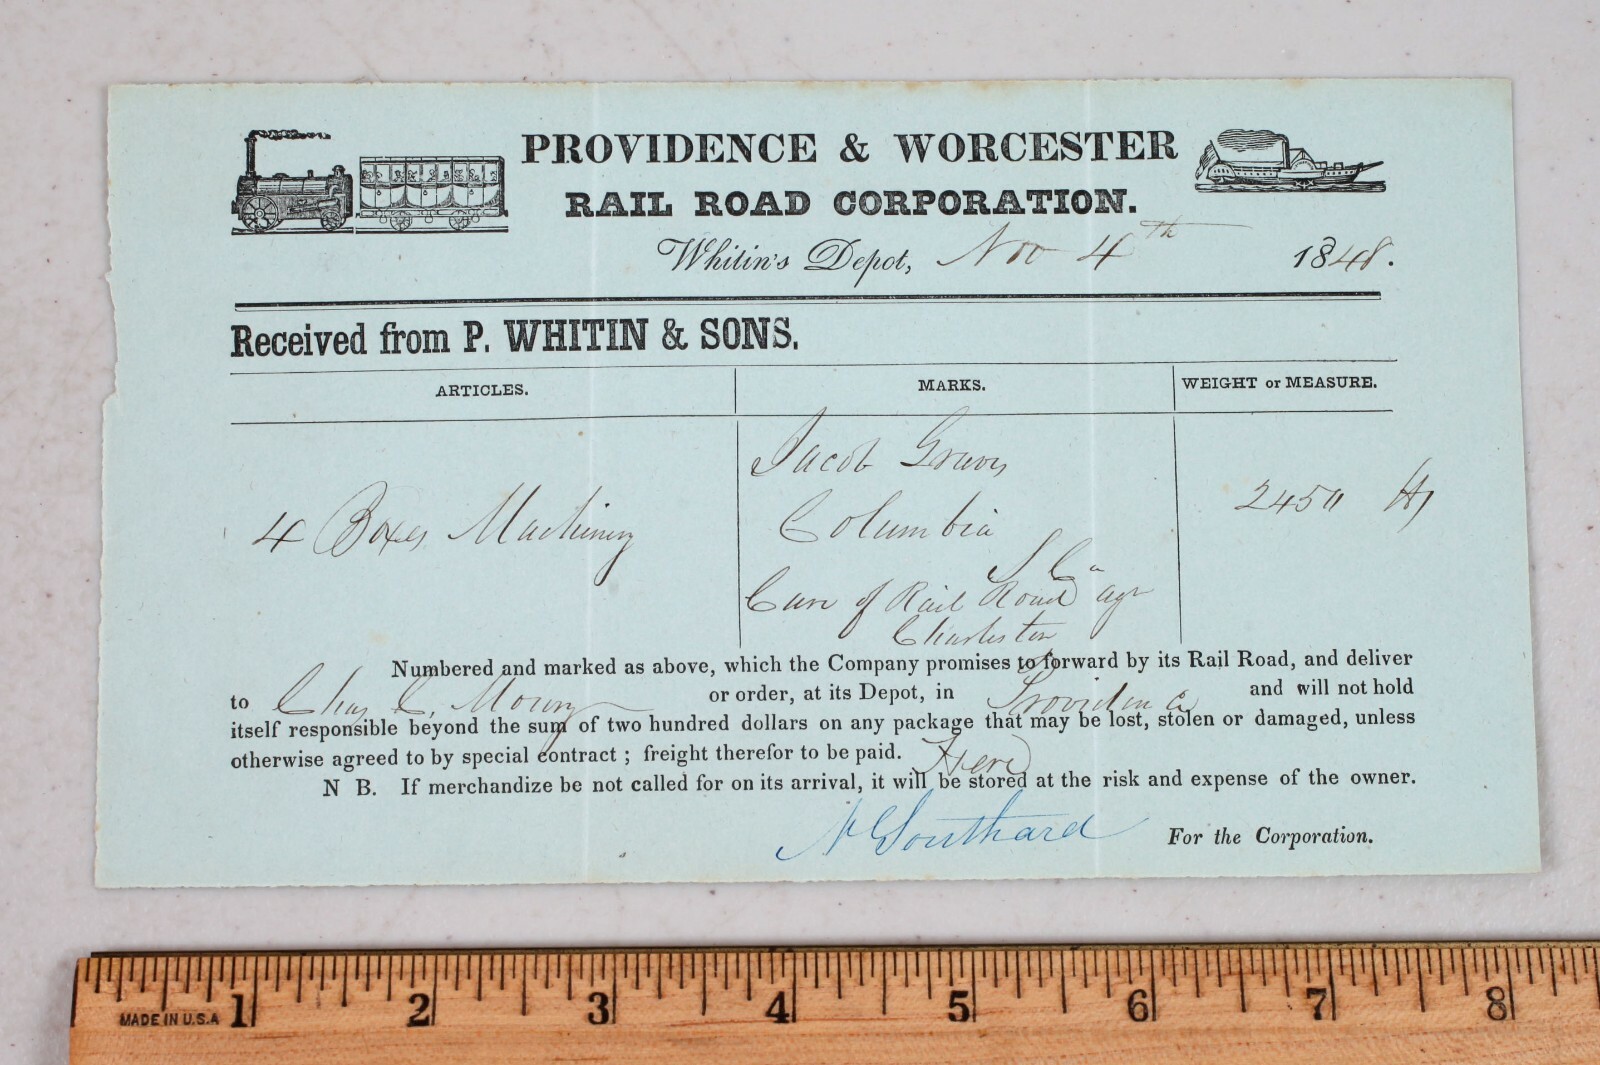 PROVIDENCE & WORCESTER
RAIL ROAD CORPORATION.
Whitin's Depot, Nov 4th 1848.
Received from P. WHITIN & SONS.
ARTICLES. MARKS. WEIGHT or MEASURE.
Jacob Graves
4 Boxes Machinery Columbia 2450 lbs
S Ca
Care of Rail Road agt
Charleston
Numbered and marked as above, which the Company promises to forward by its Rail Road, and deliver
to Chas C. Mowry or order, at its Depot, in Providence and will not hold
itself responsible beyond the sum of two hundred dollars on any package that may be lost, stolen or damaged, unless
otherwise agreed to by special contract ; freight therefor to be paid. Here
N B. If merchandize be not called for on its arrival, it will be stored at the risk and expense of the owner.
Southard For the Corporation.
MADE IN U.S.A
1 2 3 4 5 6 7 8